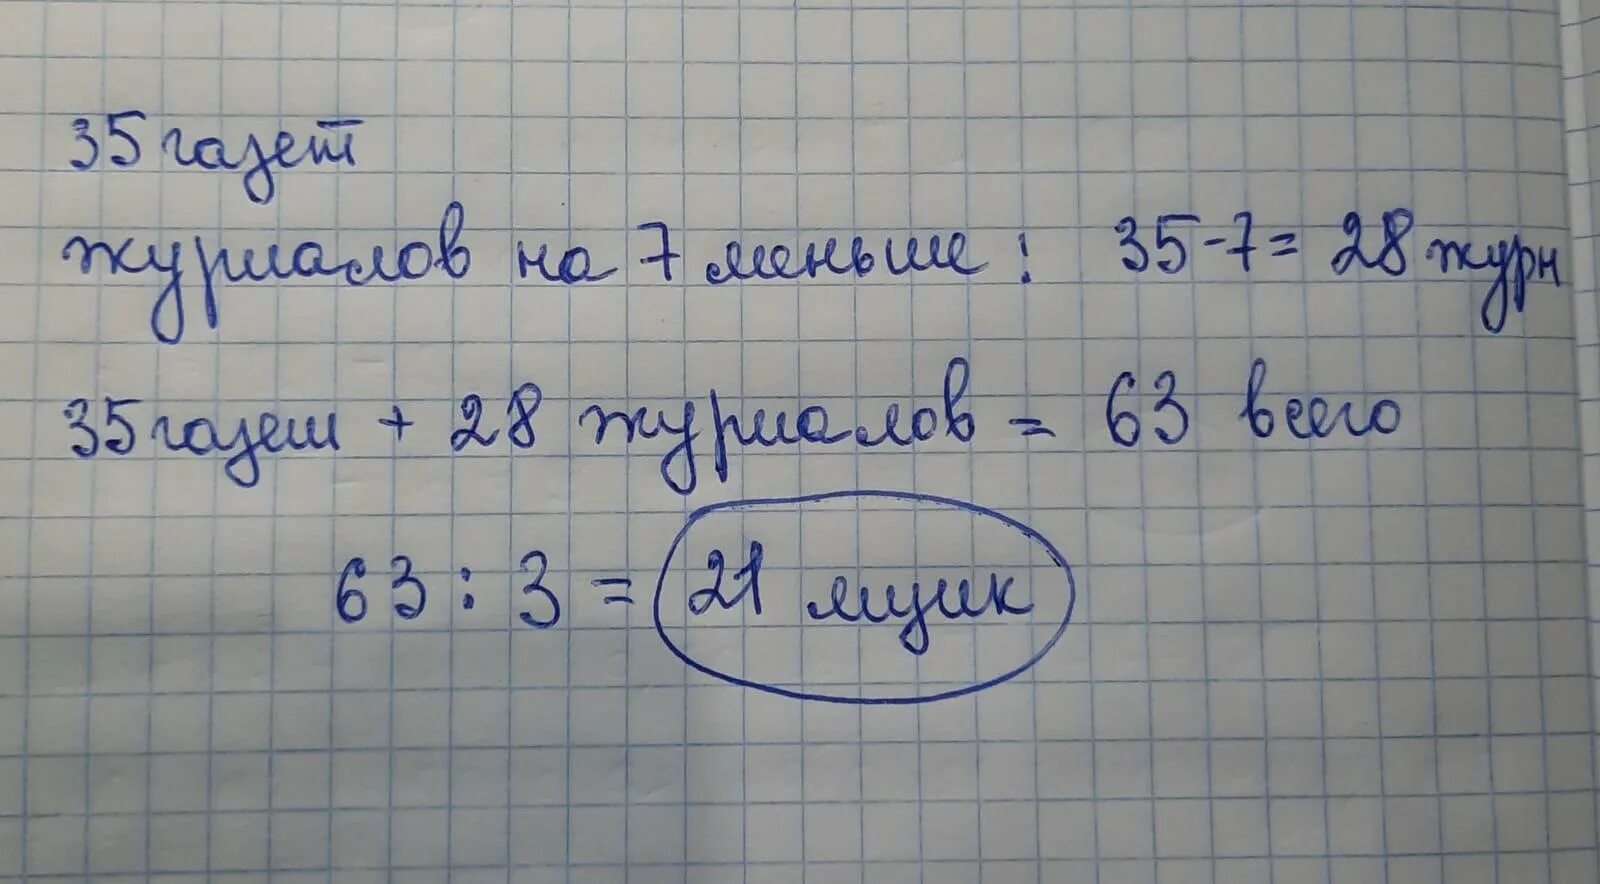 35 газет
журналов на 7 меньше: 35-7= 28 журн
35 газет + 28 журналов = 63 всего
63 : 3 = 21 ящик